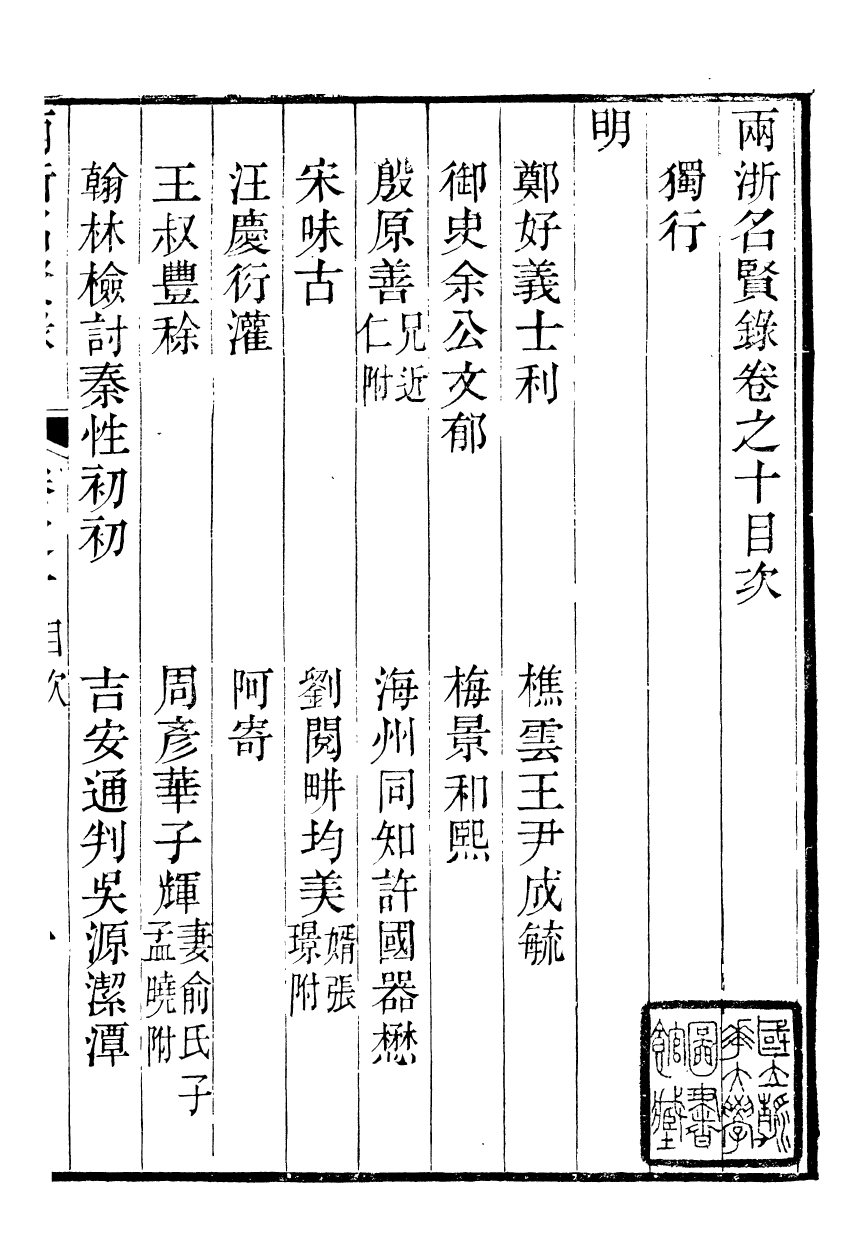 兩浙名賢錄卷之十目次
獨行
明
鄭好義士利　樵雲王尹成毓
御史余公文郁　梅景和熙
殷原善兄近仁附　海州同知許國器懋
宋味古　劉閱畊均美婿張璟附
汪慶衍灌　阿寄
王叔豐稌　周彥華子輝妻俞氏子孟曉附
翰林檢討秦性初初　吉安通判吳源潔潭
目次
國立清華大學圖書館藏